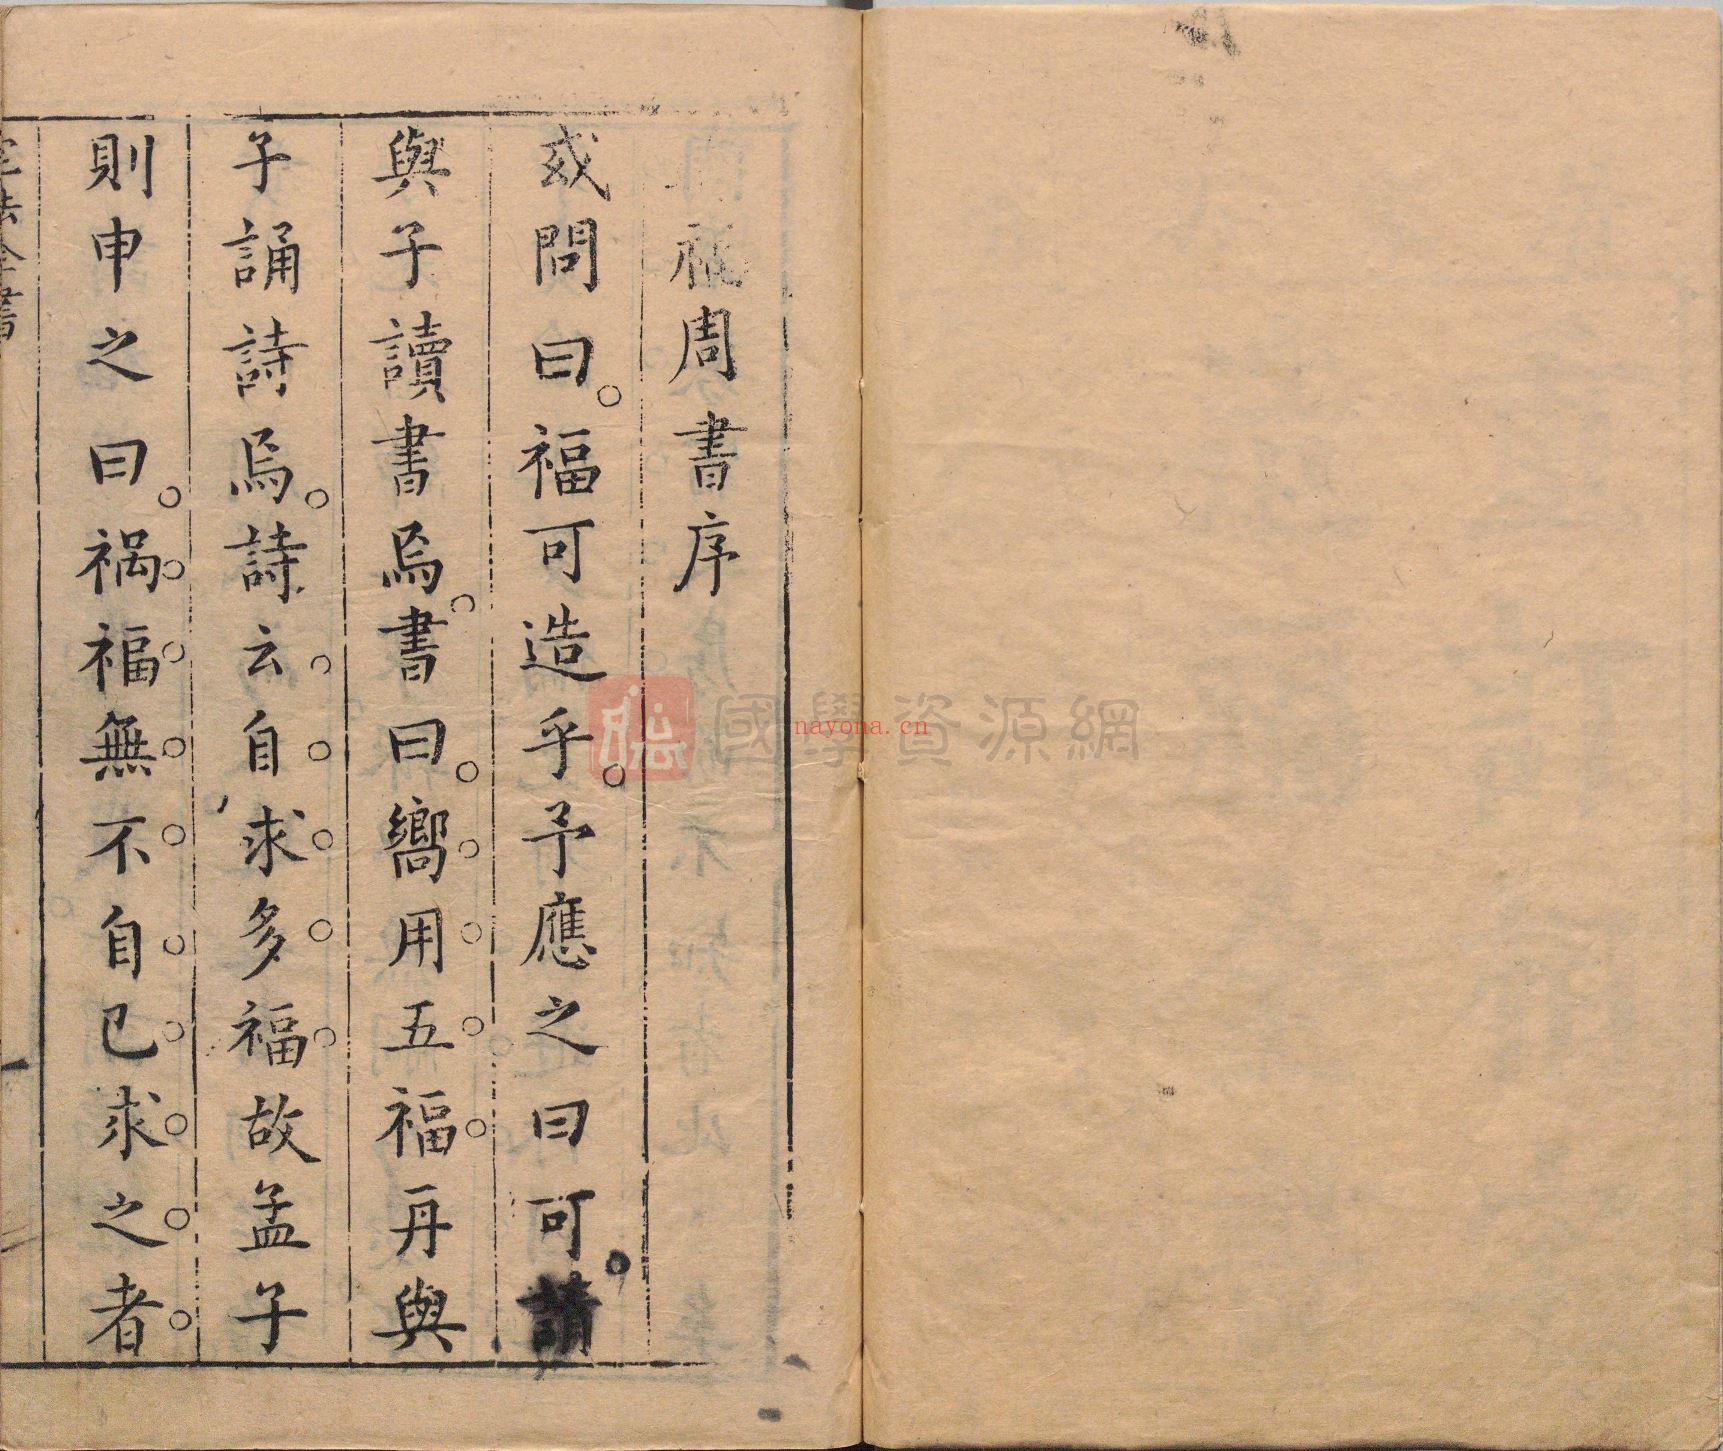 福周書序
或問曰福可造乎予應之曰可請
與子讀書焉書曰嚮用五福再與
子誦詩焉詩云自求多福故孟子
則申之曰禍福無不自已求之者
全書
國學資源網
nayona.cn